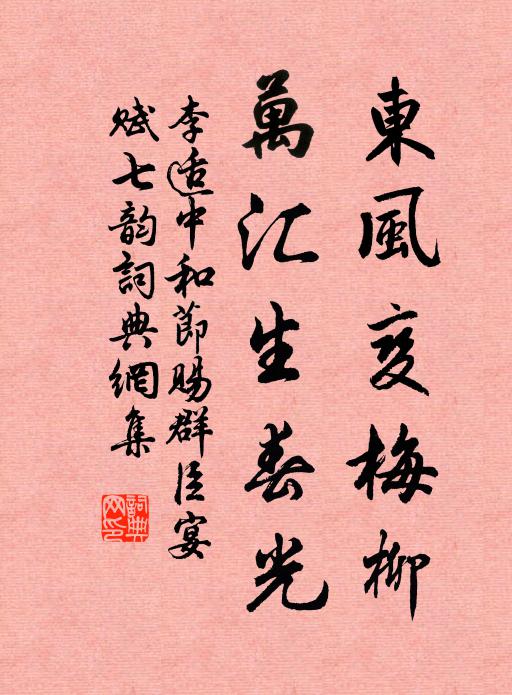 東風变梅柳
萬汇生春光
李适中和節賜群臣宴
赋七韵詞典網集
詞典
网印